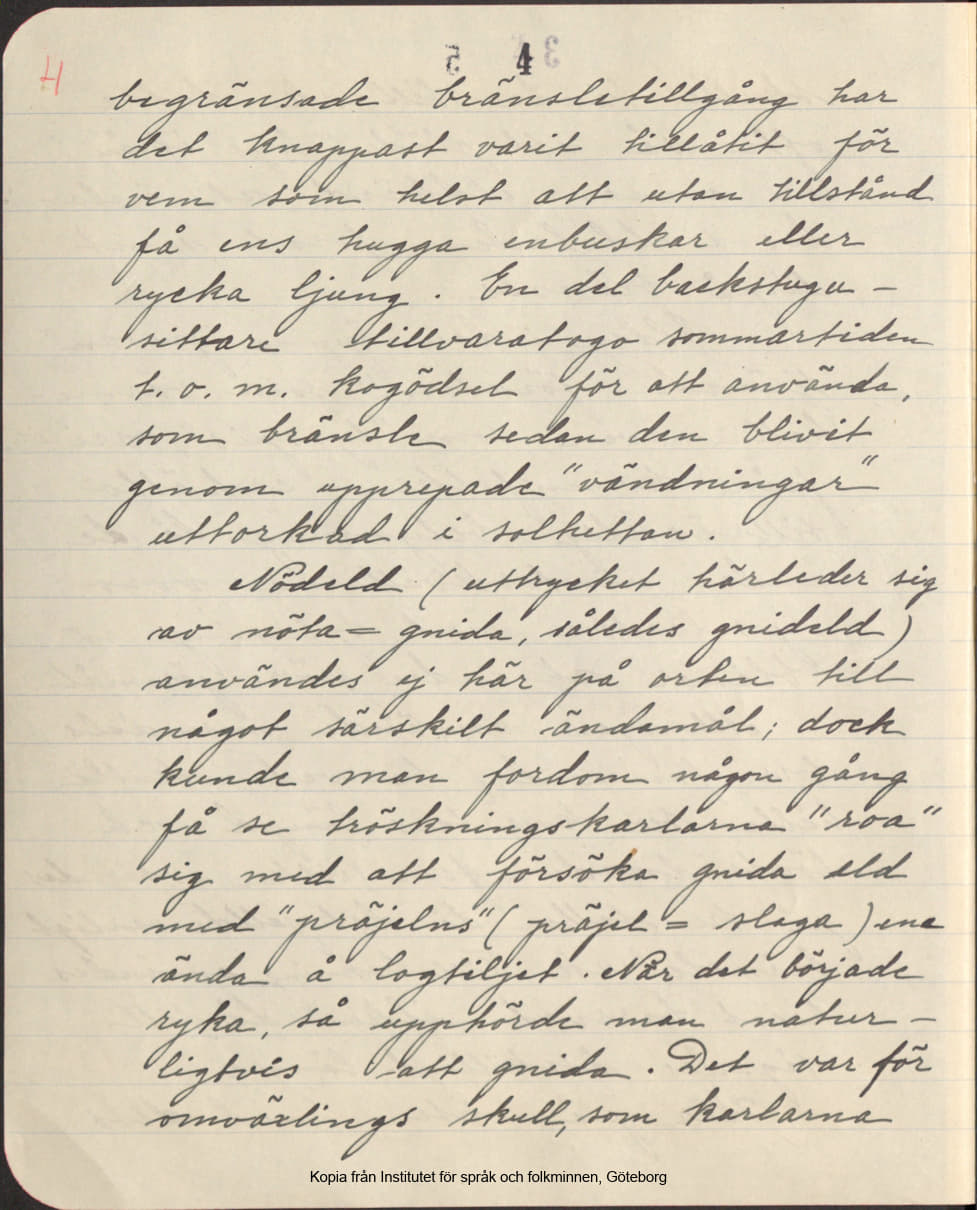 4
4
begränsade bränsletillgång har
det knappast varit tillåtit för
vem som helst att utan tillstånd
få ens hugga enbuskar eller
rycka ljung. En del backstugu-
sittare tillvaratogo sommartiden
t. o. m. kogödsel för att använda,
som bränsle sedan den blivit
genom upprepade "vändningar"
uttorkad i solhettan.
Nödeld (uttrycket härleder sig
av nöta = gnida, således gnideld)
användes ej här på orten till
något särskilt ändamål; dock
kunde man fordom någon gång
få se tröskningskarlarna "roa"
sig med att försöka gnida eld
med "präjelns" (präjel = slaga) ena
ända å logtiljet. När det började
ryka, så upphörde man natur-
ligtvis att gnida. Det var för
omväxlings skull, som karlarna
Kopia från Institutet för språk och folkminnen, Göteborg